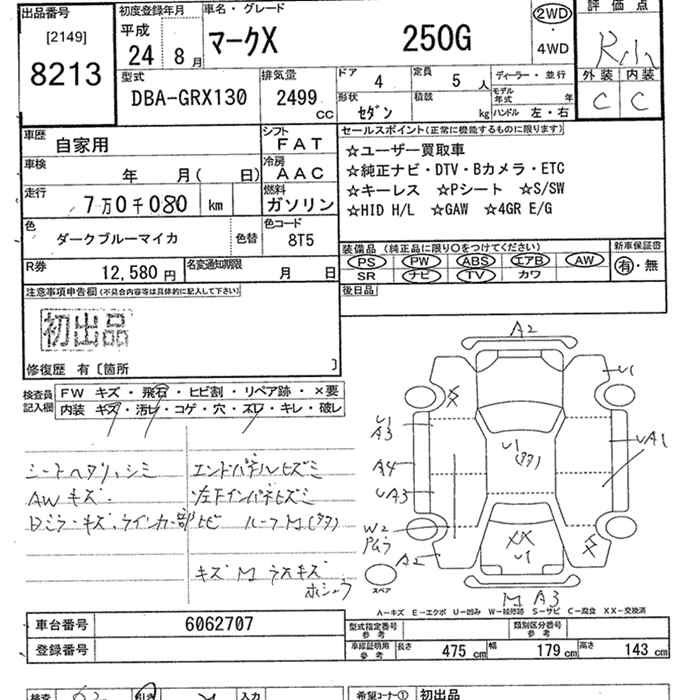 出品番号
[2149]
8213
初度登録年月
平成
24 8月
車名・グレード
マークX 250G
2WD
・
4WD
評価点
外装 内装
C C
型式
DBA-GRX130
排気量
2499
cc
ドア 4
定員 5 人
形状 セダン
積載 kg
ディーラー・並行
モデル年式 年
ハンドル 左・右
車歴
自家用
シフト
FAT
車検 年 月( 日)
冷房
AAC
走行 7万0千080 km
燃料
ガソリン
色
ダークブルーマイカ
色替
色コード
8T5
R券
12,580円
名変通知期限
月 日
セールスポイント(正常に機能するものに限ります)
☆ユーザー買取車
☆純正ナビ・DTV・Bカメラ・ETC
☆キーレス ☆Pシート ☆S/SW
☆HID H/L ☆GAW ☆4GR E/G
装備品(純正品に限り○をつけてください)
PS PW ABS エアB AW
SR ナビ TV カワ
新車保証書
有・無
後日品
注意事項申告欄(不具合内容等は具体的に記入して下さい)
初出品
修復歴 有〔箇所 〕
検査員
記入欄
FW キズ・飛石・ヒビ割・リペア跡・×要
内装 キズ・汚レ・コゲ・穴・スレ・キレ・破レ
シートヘタリ、シミ
AWキズ・
エンドパネルヒズミ
左Fインパネヒズミ
ルーフM
キズM
A2
U1
A3
A4
UA3
W2
A2
U1
UA1
U1
XX
U1
M A3
スペア
A-キズ E-エクボ U-凹み W-補修跡 S-サビ C-腐食 XX-交換済
車台番号 6062707
登録番号
型式指定番号
参考
類別区分番号
参考
車検証明用
参考
長さ 475cm
幅 179cm
高さ 143cm
検査
入力
希望コーナー① 初出品